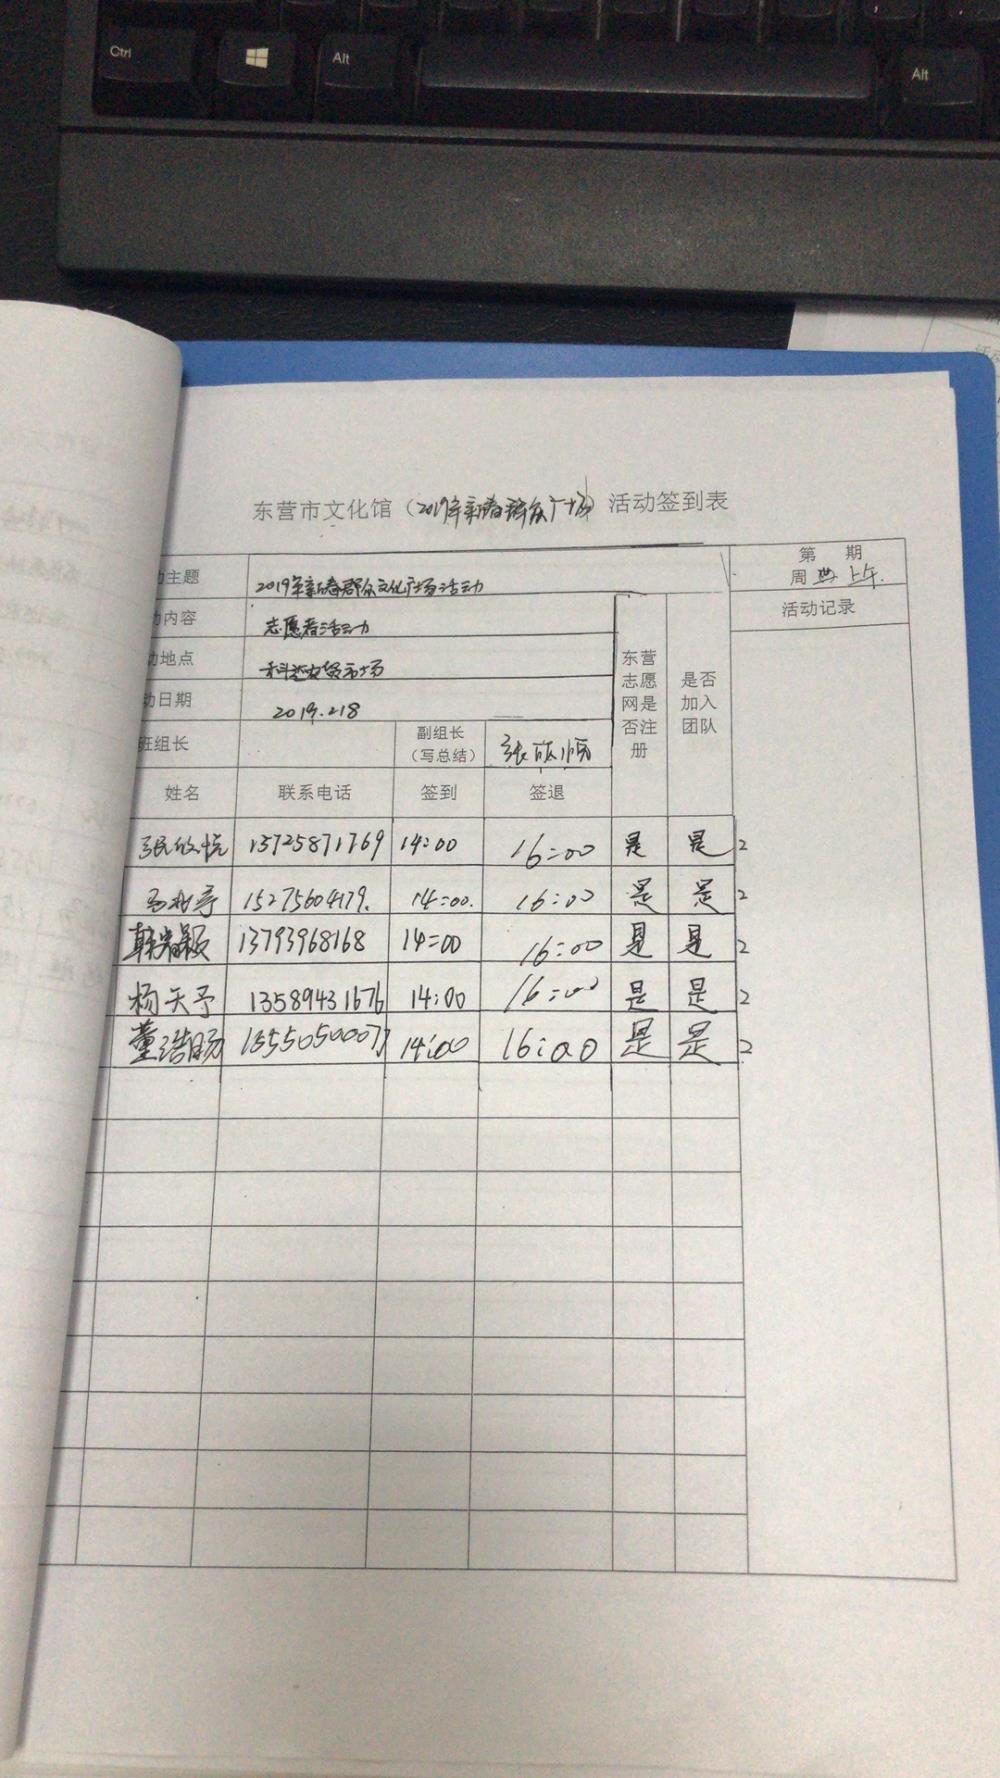 Ctrl
Alt
Alt
东营市文化馆（2019年新春群众广场）活动签到表
主题 2019年新春群众文化广场活动
第 期
周 上午.
内容 志愿者活动
活动记录
地点 市场
日期 2019.2.18
东营志愿网是否注册
是否加入团队
班组长 副组长（写总结） 张
姓名 联系电话 签到 签退
13725871769 14:00 16:00 是 是 2
15275604179. 14:00. 16:00 是 是 2
韩 13793968168 14:00 16:00 是 是 2
杨天予 13589431676 14:00 16:00 是 是 2
董浩旸 14:00 16:00 是 是 2